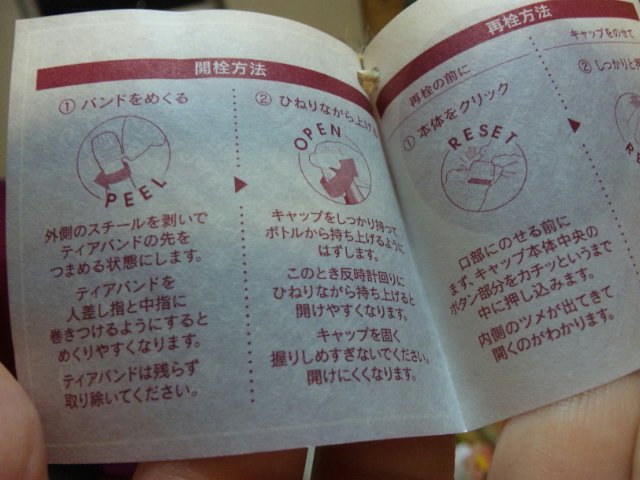 開栓方法
① バンドをめくる
PEEL
外側のスチールを剥いで
ティアバンドの先を
つまめる状態にします。
ティアバンドを
人差し指と中指に
巻きつけるようにすると
めくりやすくなります。
ティアバンドは残らず
取り除いてください。
② ひねりながら上げる
OPEN
キャップをしっかり持って
ボトルから持ち上げるように
はずします。
このとき反時計回りに
ひねりながら持ち上げると
開けやすくなります。
キャップを固く
握りしめすぎないでください。
開けにくくなります。
再栓方法
再栓の前に
① 本体をクリック
RESET
口部にのせる前に
まず、キャップ本体中央の
ボタン部分をカチッというまで
中に押し込みます。
内側のツメが出てきて
開くのがわかります。
キャップをのせて
② しっかりと